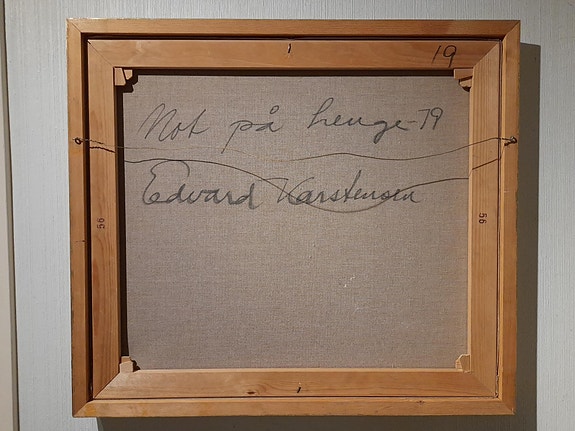 19
Not på henge-79
Edvard Karstensen
56
56